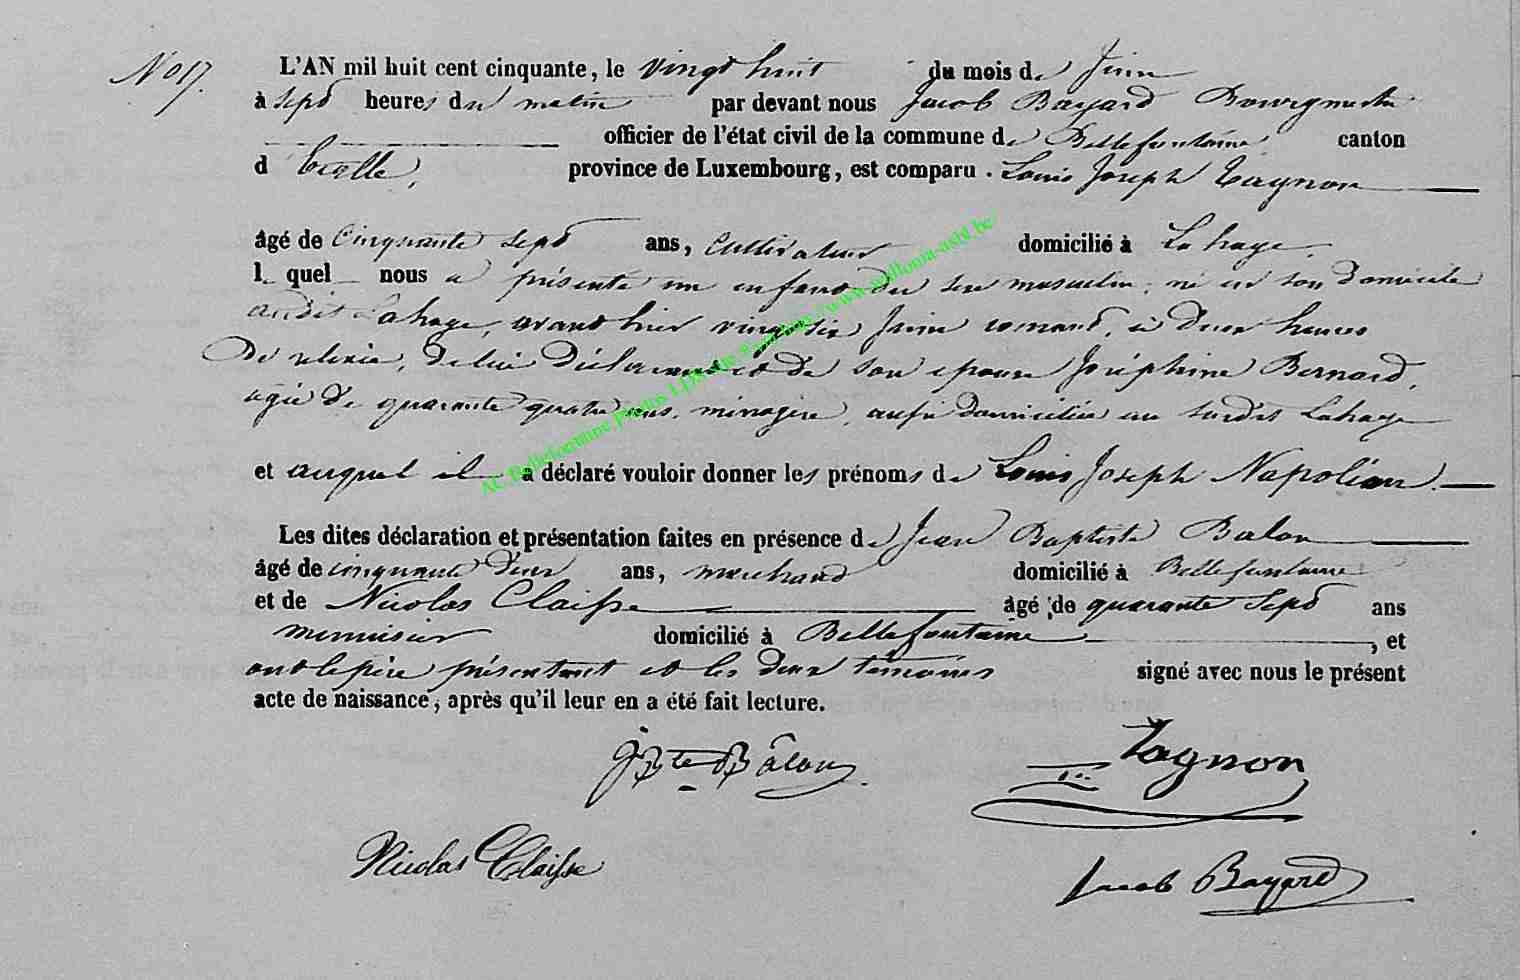 No 17.
L'AN mil huit cent cinquante, le vingt huit du mois de Juin
à sept heures du matin par devant nous Jacob Bayard Bourgmestre
officier de l'état civil de la commune de Bellefontaine canton
d' Etalle, province de Luxembourg, est comparu Louis Joseph Tagnon
âgé de Cinquante sept ans, Cultivateur domicilié à Lahage
lequel nous a présenté un enfant du sexe masculin, né en son domicile
audit Lahage, avant hier vingt six Juin courant, à Deux heures
De relevée, De lui Déclarant et de son épouse Joséphine Bernard,
agée de quarante quatre ans, ménagère, aussi Domiciliée au susdit Lahage
et auquel il a déclaré vouloir donner les prénoms de Louis Joseph Napoléon.
Les dites déclaration et présentation faites en présence de Jean Baptiste Balon
âgé de cinquante Deux ans, marchand domicilié à Bellefontaine
et de Nicolas Claisse âgé de quarante Sept ans
menuisier domicilié à Bellefontaine, et
ont le père présentant et les deux témoins signé avec nous le présent
acte de naissance, après qu'il leur en a été fait lecture.
JBte Bâlon
Tagnon
Nicolas Claisse
Jacob Bayard
AC Bellefontaine Photos LDS via Familles / www.wallonia-asbl.be/